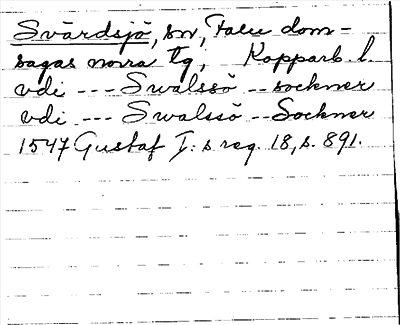 Svärdsjö, sn, Falu dom-
sagas norra tg, Kopparb. l.
vdi --- Swalssö -- sockner
vdi --- Swalssö -- Sockner
1547 Gustaf I:s reg. 18, s. 891.